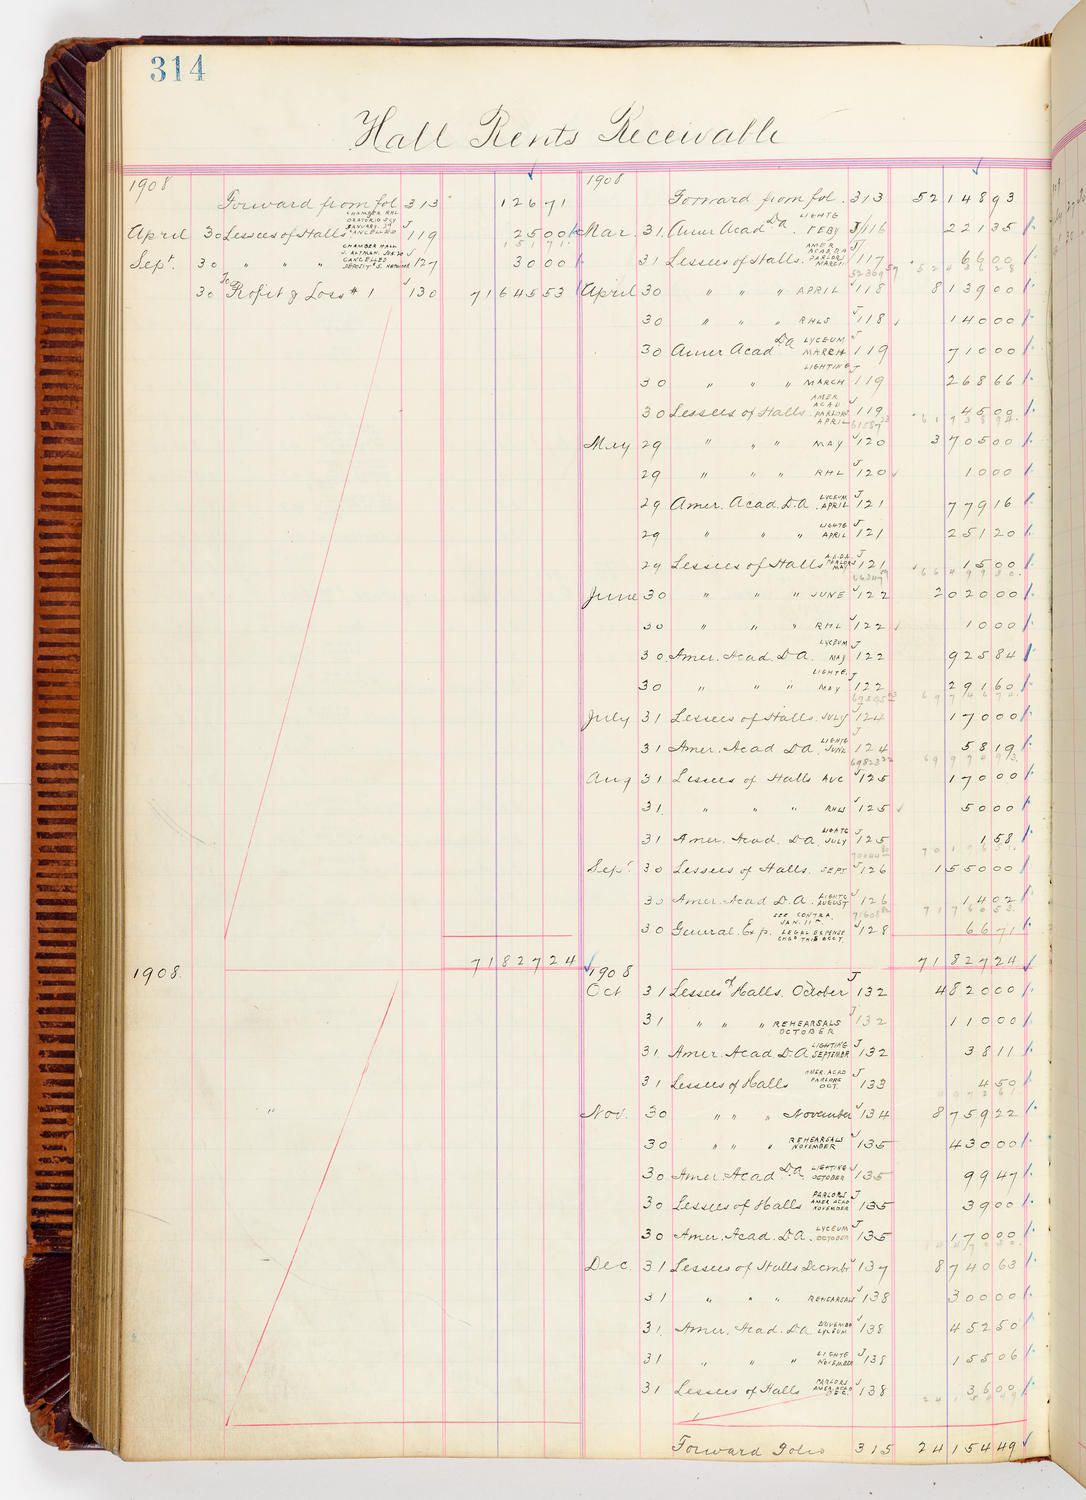 314
Hall Rents Receivable
1908
Forward from fol. 313 126 71
April 30 Lessees of Halls CHAMBER HALL ORATORIO SCY JANUARY 29 CANCELLED J 119 25 00
151 71
Sept. 30 " " " CHAMBER HALL J. ALTMAN. JUN 20 CANCELLED DEPOSIT J 127 30 00
30 To Profit & Loss # 1 J 130 71 645 53
71 827 24
1908
1908
Forward from fol. 313 52 148 93
Mar. 31 Amer Acad D.A. LIGHTG FEBY J 116 221 35
31 Lessees of Halls. AMER ACAD. DA PARLORS MARCH J 117 66 00
52 436 28
April 30 " " " APRIL J 118 8 139 00
30 " " " RHLS J 118 140 00
30 Amer Acad D.A. LYCEUM MARCH J 119 710 00
30 " " " LIGHTING MARCH J 119 268 66
30 Lessees of Halls AMER ACAD PARLORS APRIL J 119 45 00
61 738 94
May 29 " " " MAY J 120 3 705 00
29 " " " RHL J 120 10 00
29 Amer. Acad. D.A. LYCEUM APRIL J 121 779 16
29 " " " LIGHTG APRIL J 121 251 20
29 Lessees of Halls A.A.D.A. PARLORS MAY J 121 15 00
66 499 30
June 30 " " " JUNE J 122 2 020 00
30 " " " RHL J 122 10 00
30 Amer. Acad. D.A. LYCEUM MAY J 122 925 84
30 " " " LIGHTG. MAY J 122 291 60
69 746 74
July 31 Lessees of Halls. JULY J 124 170 00
31 Amer. Acad D.A. LIGHTG JUNE J 124 58 19
69 974 93
Aug 31 Lessees of Halls AUG J 125 170 00
31 " " " RHLS J 125 50 00
31 Amer. Acad. D.A. LIGHTG JULY J 125 1 58
Sept. 30 Lessees of Halls. SEPT J 126 1 550 00
30 Amer. Acad D.A. LIGHTG AUGUST J 126 14 02
71 760 53
30 General Exp. SEE CONTRA. JAN. 11TH. LEGAL EXPENSE CHGD THIS ACCT. J 128 66 71
71 827 24
1908
Oct 31 Lessees of Halls. October J 132 4 820 00
31 " " " REHEARSALS OCTOBER J 132 110 00
31 Amer. Acad D.A. LIGHTING SEPTEMBR J 132 38 11
31 Lessees of Halls AMER. ACAD PARLORS OCT. J 133 4 50
Nov. 30 " " " November J 134 8 759 22
30 " " " REHEARSALS NOVEMBER J 135 430 00
30 Amer. Acad D.A. LIGHTING OCTOBER J 135 99 47
30 Lessees of Halls PARLORS AMER ACAD NOVEMBER J 135 39 00
30 Amer. Acad. D.A. LYCEUM OCTOBER J 135 170 00
Dec. 31 Lessees of Halls Decmbr J 137 8 740 63
31 " " " REHEARSALS J 138 300 00
31 Amer. Acad. D.A. NOVEMBR LYCEUM J 138 452 50
31 " " " LIGHTG NOVEMBER J 138 155 06
31 Lessees of Halls PARLORS AMER ACAD DEC. J 138 36 00
Forward Folio 315 24 154 49